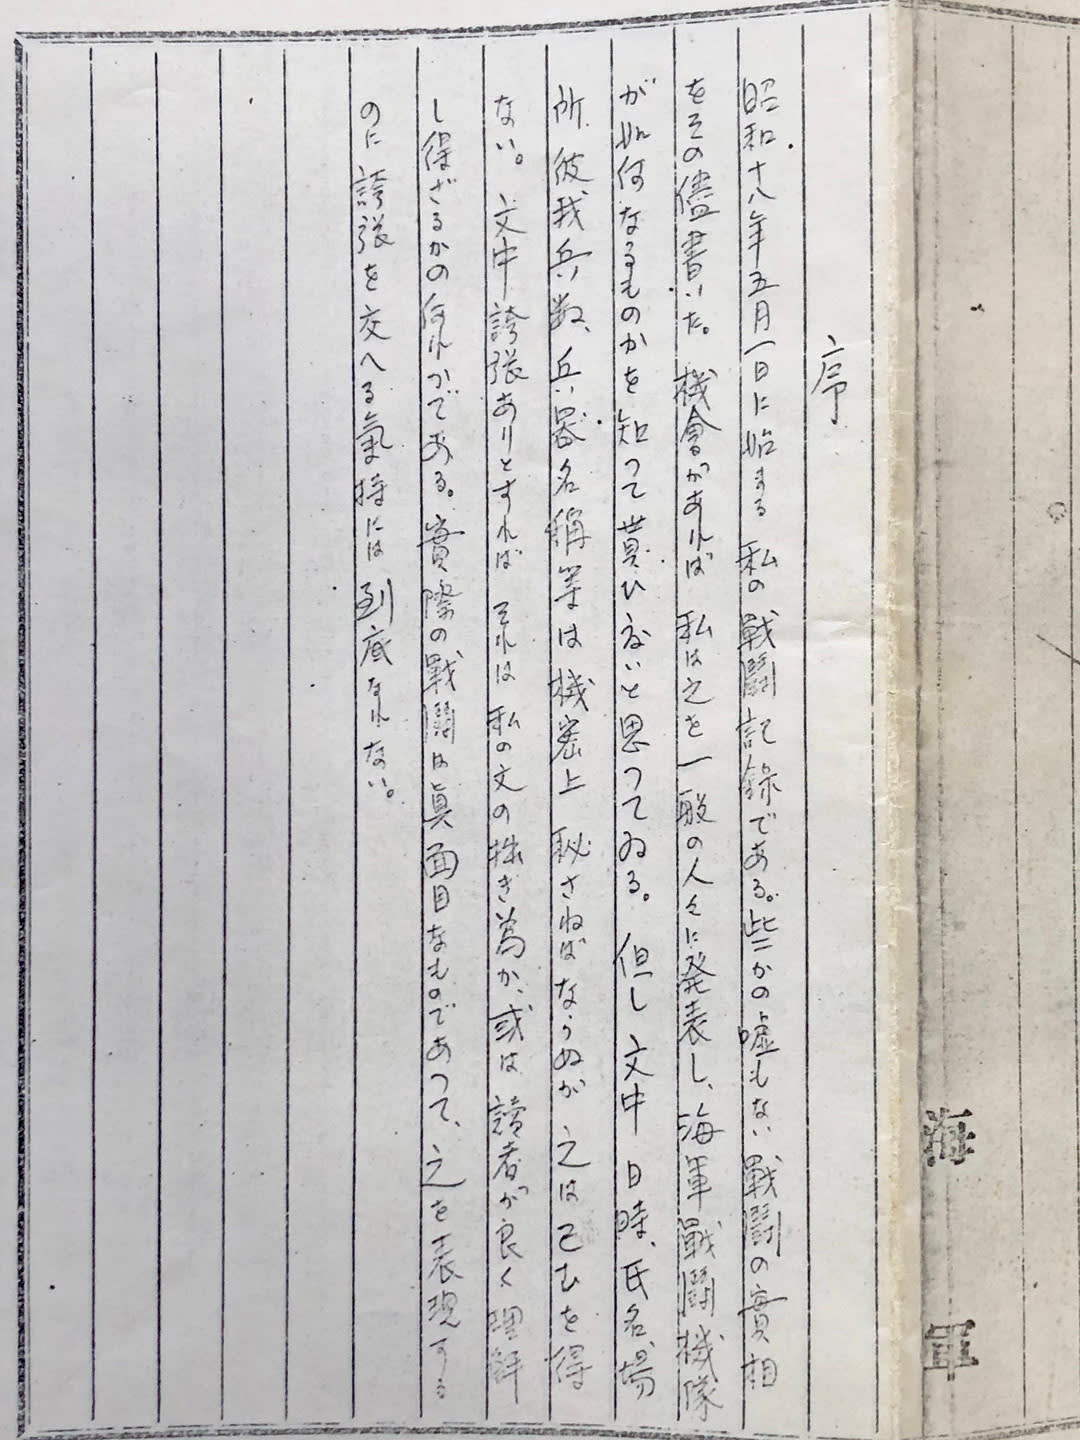 海軍
序
昭和十八年五月一日に始まる 私の戰鬪記録である。些かの嘘もない戰鬪の實相
をその儘書いた。機會があれば 私は之を一般の人々に発表し、海軍戰鬪機隊
が如何なるものかを知って貰ひたいと思つてゐる。但し文中 日時、氏名、場
所、彼我兵数、兵器名稱等は機密上秘さねばならぬが 之は已むを得
ない。文中誇張ありとすれば それは私の文の拙き為か、或は讀者が良く理解
し得ざるかの何れかである。實際の戰鬪は真面目なものであつて、之を表現する
のに誇張を交へる氣持には到底なれない。